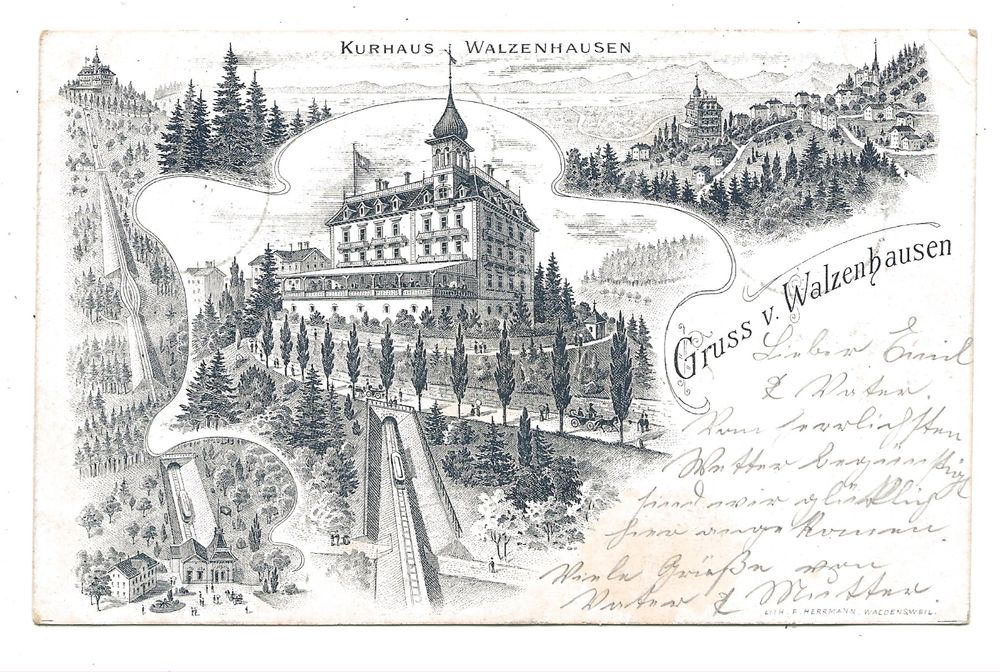 KURHAUS WALZENHAUSEN
Gruss v. Walzenhausen
Lieber Emil
& Vater.
Vom herrlichsten
Wetter begünstigt
sind wir glücklich
hier angekomen.
Viele Grüße von
Vater & Mutter.
LITH. F. HERRMANN, WAEDENSWEIL.